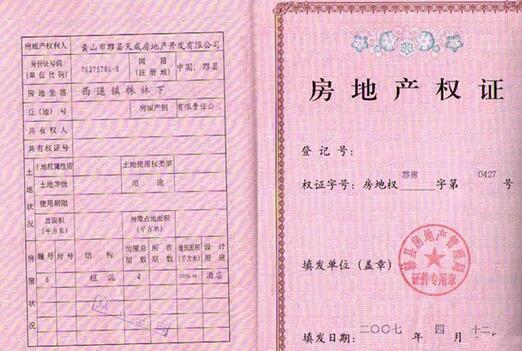 房地产权利人 黄山市黟县天成房地产开发有限公司
身份证号码(单位代码) 76275786-X 国籍(注册地) 中国,黟县
房地坐落 西递镇株林下
丘(地)号 房屋产别 有限责任公司
共有人
共有权证号
土地状况 土地权属性质 土地使用权类型
土地等级 用途
使用期限
总面积(平方米) 房屋占地面积(平方米)
房屋状况 幢号 房号 结构 房屋总层数 所在层数 建筑面积(平方米) 设计用途
6 混 4 酒店
房地产权证
登记号:
权证字号: 房地权 黟房 字第 0427 号
黟县房地产管理局
证件专用章
填发单位(盖章)
填发日期: 二〇〇七 年 四 月 十二